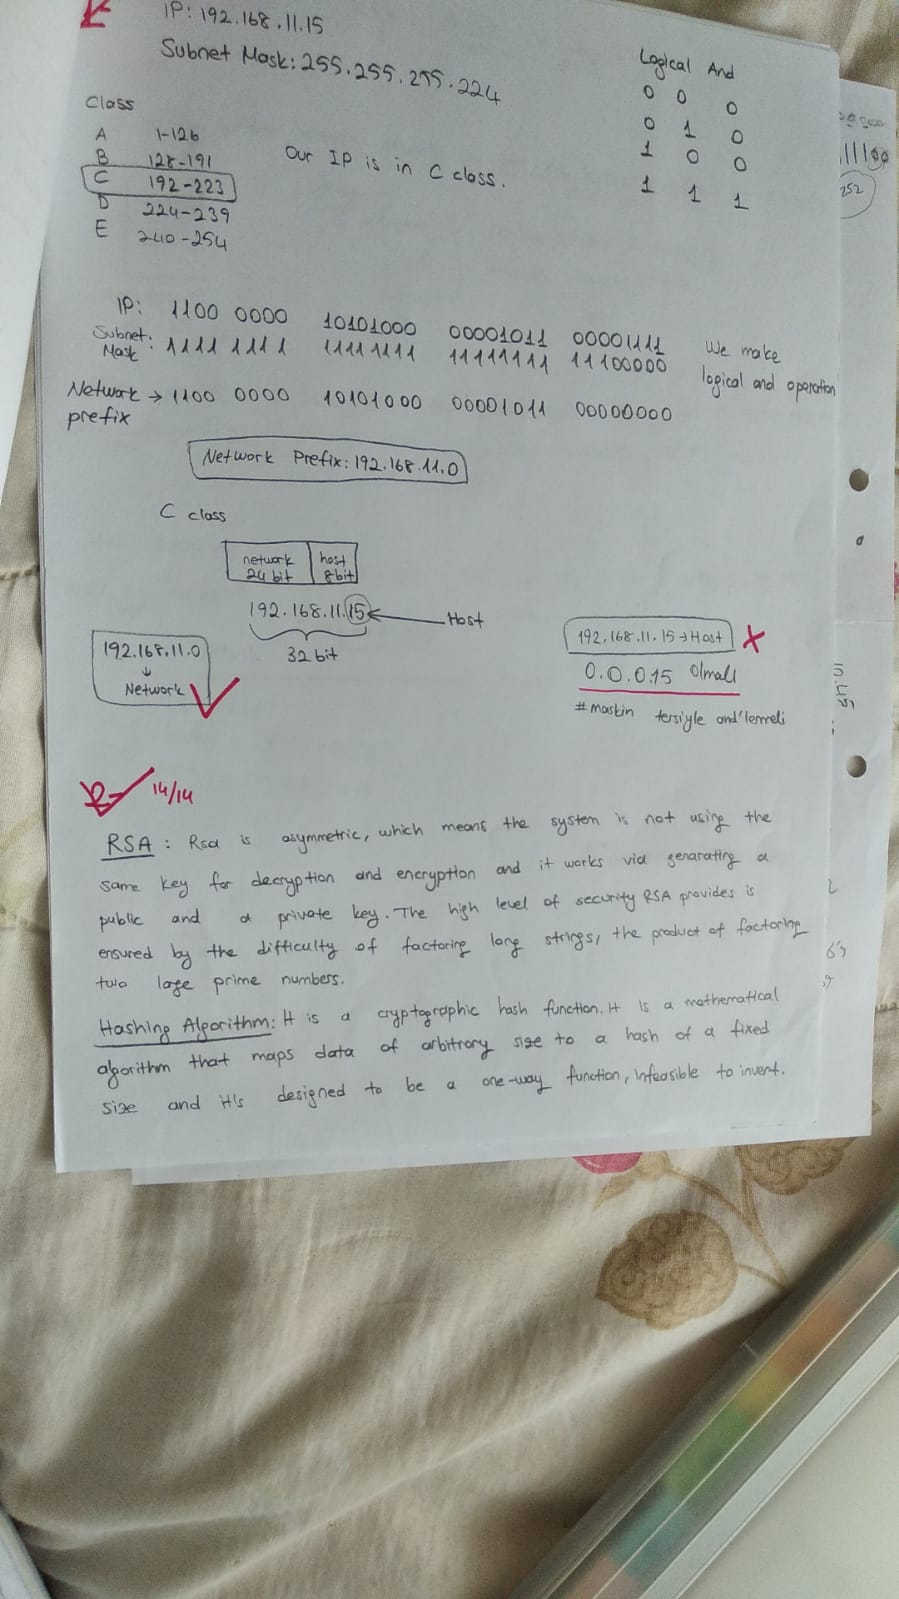 IP: 192.168.11.15
Subnet Mask: 255.255.255.224
Logical And
0 0 0
0 1 0
1 0 0
1 1 1
Class
A 1-126
B 128-191
C 192-223
D 224-239
E 240-254
Our IP is in C class.
IP: 1100 0000 10101000 00001011 00001111
Subnet Mask: 1111 1111 11111111 11111111 11100000
We make
logical and operation
Network → 1100 0000 10101000 00001011 00000000
prefix
Network Prefix: 192.168.11.0
C class
network host
24 bit 8bit
192.168.11.15 ← Host
32 bit
192.168.11.0
↓
Network
192.168.11.15 → Host
0.0.0.15 Olmalı
# maskin tersiyle and'lenmeli
14/14
RSA : Rsa is asymmetric, which means the system is not using the
same key for decryption and encryption and it works via genarating a
public and a private key. The high level of security RSA provides is
ensured by the difficulty of factoring long strings, the product of factoring
two lage prime numbers.
Hashing Algorithm: It is a cryptographic hash function. It is a mathematical
algorithm that maps data of arbitrary size to a hash of a fixed
size and it's designed to be a one-way function, infeasible to invert.
252
10.45